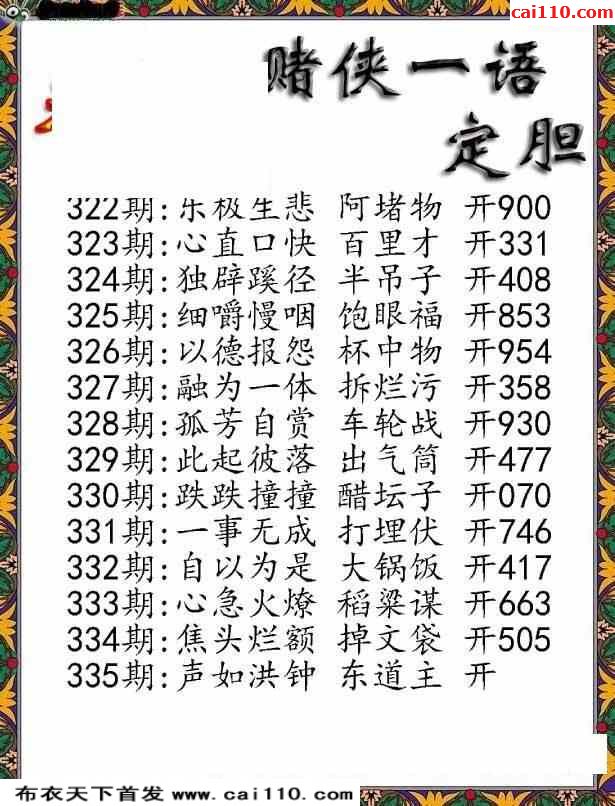 cai110.com
赌侠一语
定胆
322期:乐极生悲 阿堵物 开900
323期:心直口快 百里才 开331
324期:独辟蹊径 半吊子 开408
325期:细嚼慢咽 饱眼福 开853
326期:以德报怨 杯中物 开954
327期:融为一体 拆烂污 开358
328期:孤芳自赏 车轮战 开930
329期:此起彼落 出气筒 开477
330期:跌跌撞撞 醋坛子 开070
331期:一事无成 打埋伏 开746
332期:自以为是 大锅饭 开417
333期:心急火燎 稻粱谋 开663
334期:焦头烂额 掉文袋 开505
335期:声如洪钟 东道主 开
布衣天下首发 www.cai110.com